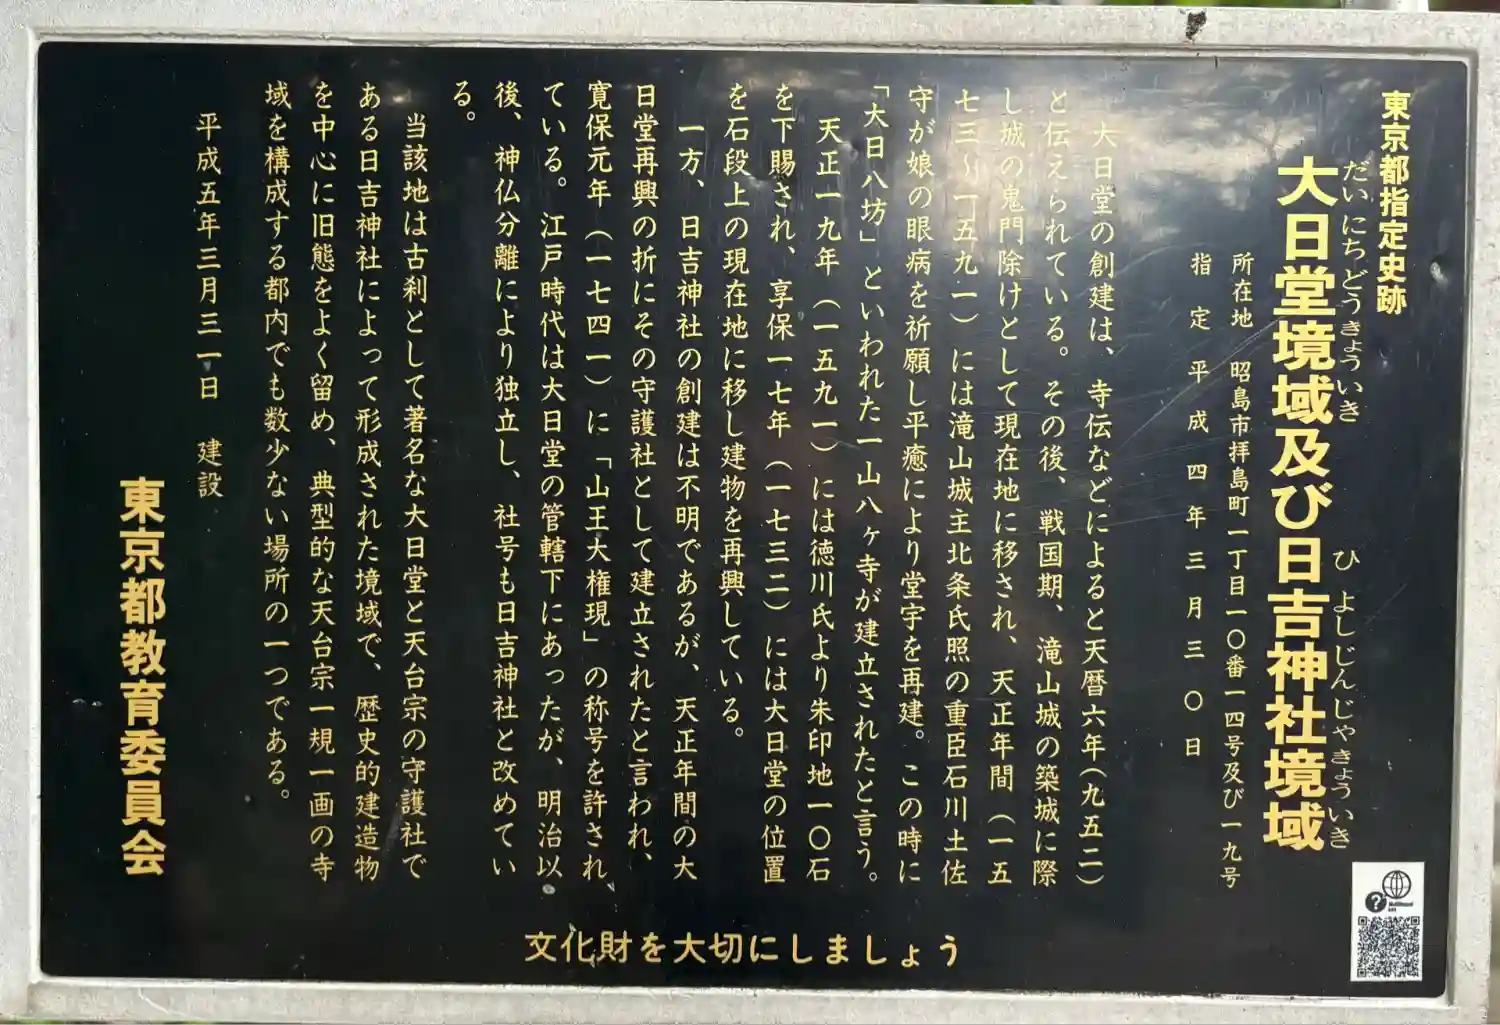 東京都指定史跡
だいにちどうきょういき ひよしじんじゃきょういき
大日堂境域及び日吉神社境域
所在地 昭島市拝島町一丁目一〇番一四号及び一九号
指定 平成四年三月三〇日
大日堂の創建は、寺伝などによると天暦六年(九五二)
と伝えられている。その後、戦国期、滝山城の築城に際
し城の鬼門除けとして現在地に移され、天正年間(一五
七三〜一五九一)には滝山城主北条氏照の重臣石川土佐
守が娘の眼病を祈願し平癒により堂宇を再建。この時に
「大日八坊」といわれた一山八ヶ寺が建立されたと言う。
天正一九年(一五九一)には徳川氏より朱印地一〇石
を下賜され、享保一七年(一七三二)には大日堂の位置
を石段上の現在地に移し建物を再興している。
一方、日吉神社の創建は不明であるが、天正年間の大
日堂再興の折にその守護社として建立されたと言われ、
寛保元年(一七四一)に「山王大権現」の称号を許され
ている。江戸時代は大日堂の管轄下にあったが、明治以
後、神仏分離により独立し、社号も日吉神社と改めてい
る。
当該地は古刹として著名な大日堂と天台宗の守護社で
ある日吉神社によって形成された境域で、歴史的建造物
を中心に旧態をよく留め、典型的な天台宗一規一画の寺
域を構成する都内でも数少ない場所の一つである。
平成五年三月三一日 建設
東京都教育委員会
文化財を大切にしましょう